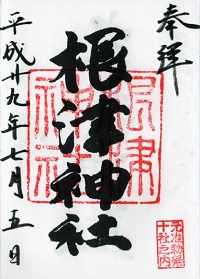 奉拝
根津神社
根津神社
元准勅祭
十社之内
平成廿九年七月五日